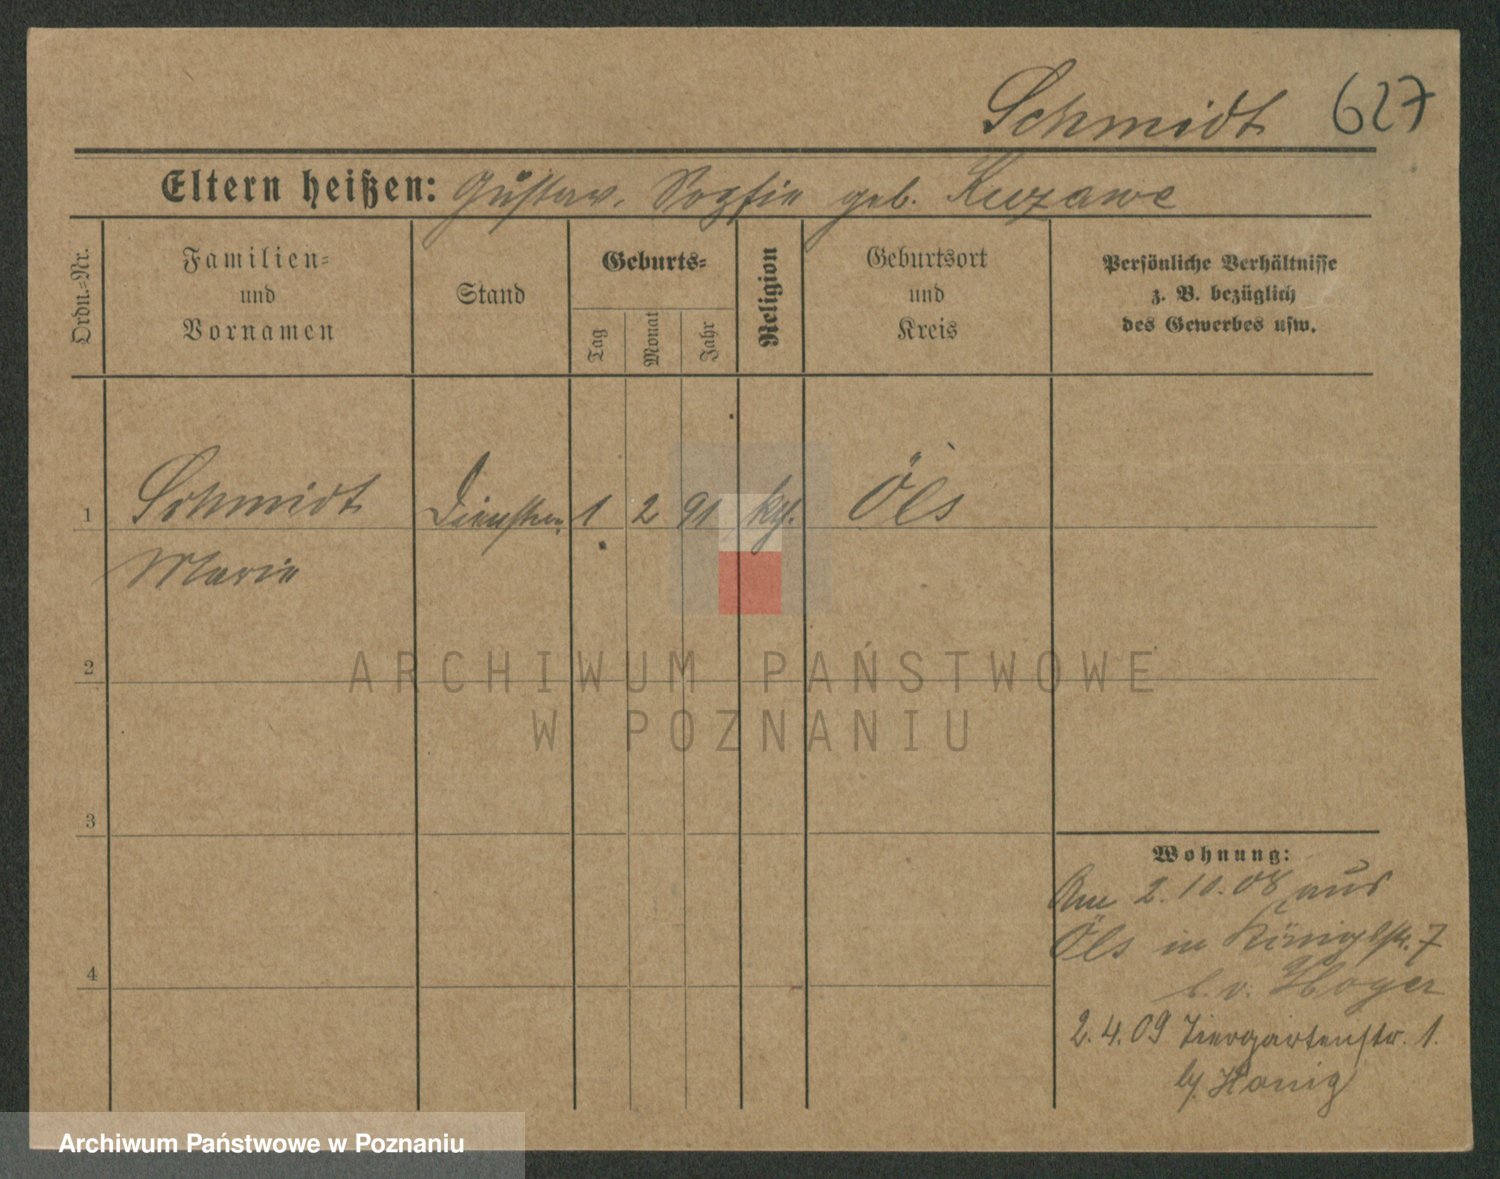 Schmidt 627
Eltern heißen: Gustav, Sophie geb. Kuzawe
Ordn.-Nr.
Familien-
und
Vornamen
Stand
Geburts-
Tag
Monat
Jahr
Religion
Geburtsort
und
Kreis
Persönliche Verhältnisse
z. B. bezüglich
des Gewerbes usw.
1 Schmidt 1 2 91 Öls
Marie
2
3
4
Wohnung:
Am 2.10.08 aus
Öls in Königstr. 7
b. v. Hoyer
2.4.09 Tiergartenstr. 1.
b/ Honig
ARCHIWUM PAŃSTWOWE
W POZNANIU
Archiwum Państwowe w Poznaniu